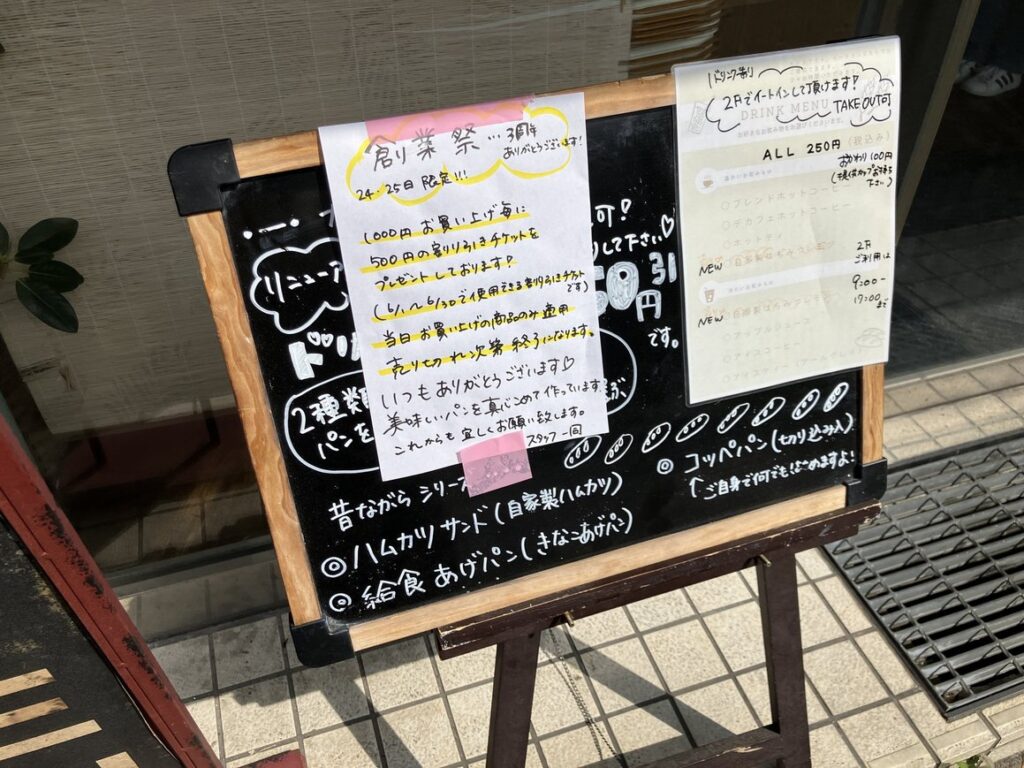 創業祭…3周年
ありがとうございます!
24・25日 限定!!!
1000円 お買い上げ毎に
500円の割り引きチケットを
プレゼントしております!
(6/1〜6/30で使用できる割り引きチケット
です)
当日お買い上げの商品のみ適用
売り切れ次第終了になります。
いつもありがとうございます♡
美味しいパンを真心こめて作っています。
これからも宜しくお願い致します。
スタッフ一同
可!
して下さい♡
リニューア
ドリ
50円引
です。
2種類
パンを
昔ながらシリーズ
◎ハムカツサンド(自家製ハムカツ)
◎給食あげパン(きなこあげパン)
◎コッペパン(切り込み入)
(ご自身で何でもはさめますよ!
ドリンク有り
2Fでイートインして頂けます!
TAKE OUT可
DRINK MENU
お好きなお飲み物をお選びくださいませ。
ALL 250円(税込み)
おかわり100円
(提供カップお持ち
下さい)
温かいお飲みもの
○ブレンドホットコーヒー
○デカフェホットコーヒー
○ホットティ
NEW ○自家製はちみつレモン
2Fご利用は
9:00-
17:00まで
冷たいお飲みもの
NEW ○自家製はちみつレモン
○アップルジュース
○アイスコーヒー